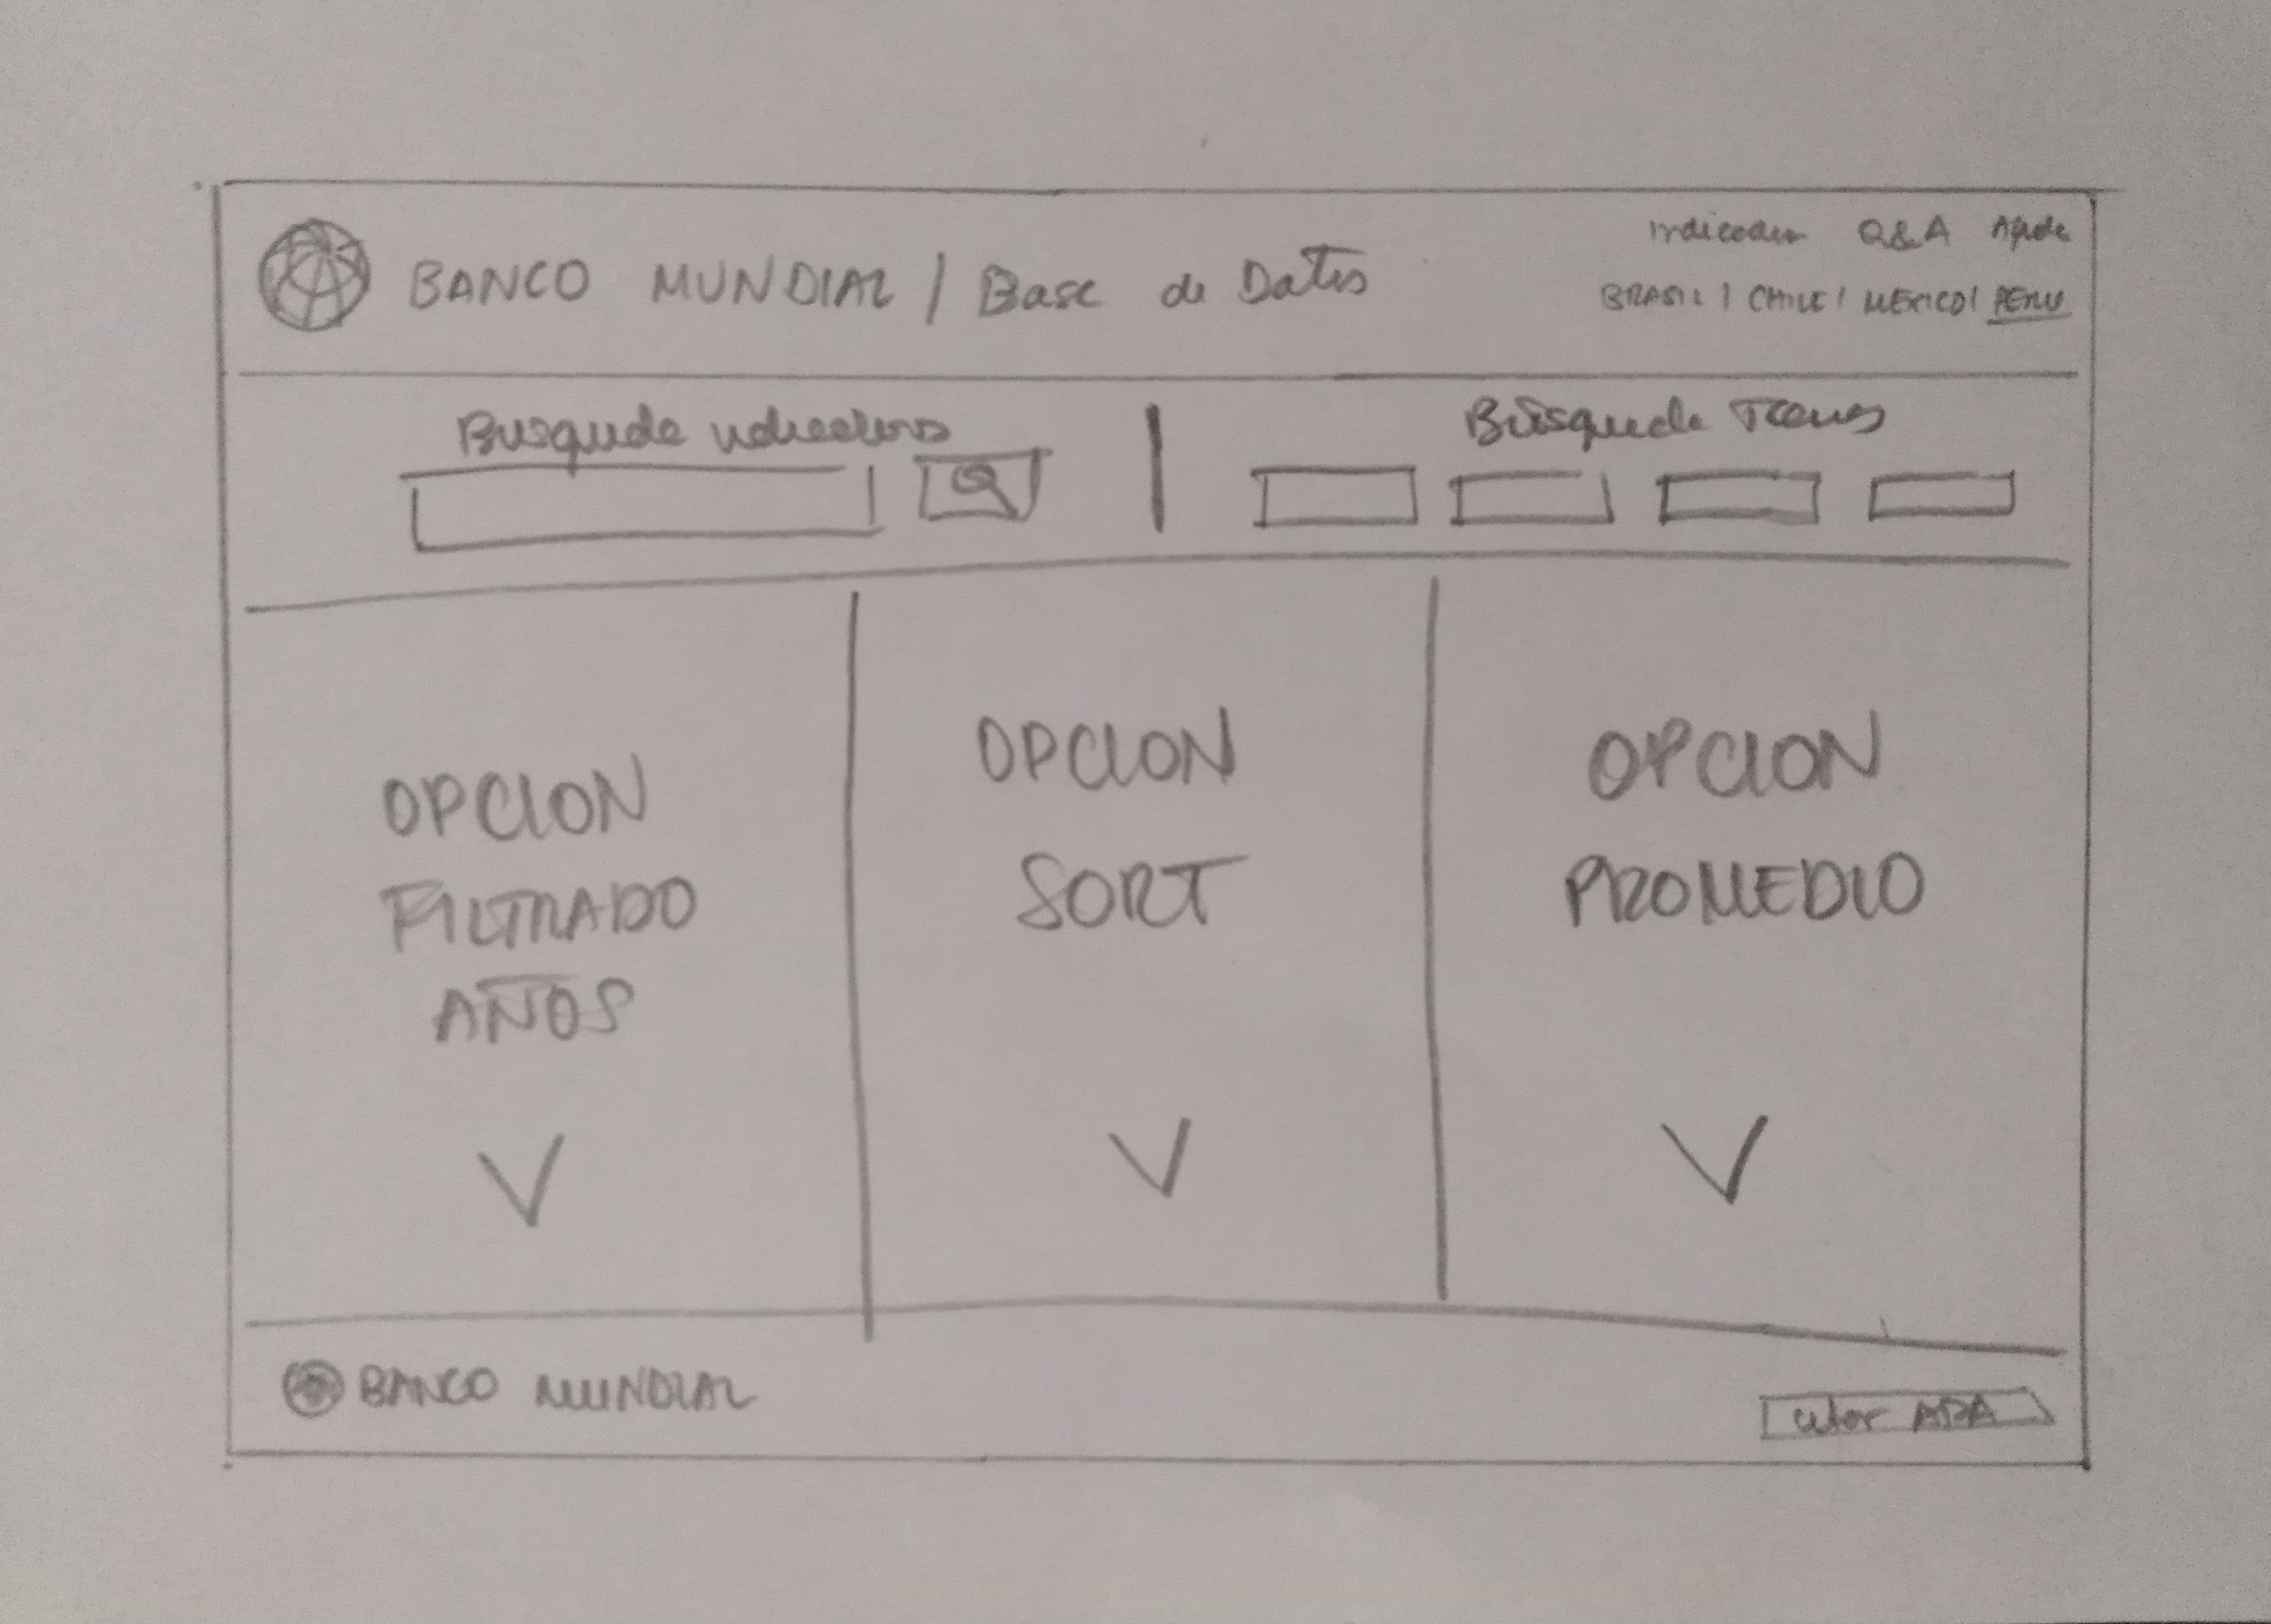 BANCO MUNDIAL / Base de Datos
Indicadores Q&A Ayuda
BRASIL | CHILE | MEXICO | PERU
Busqueda indicadores
Búsqueda Temas
OPCION
FILTRADO
AÑOS
OPCION
SORT
OPCION
PROMEDIO
BANCO MUNDIAL
citar APA